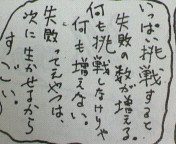 いっぱい挑戦すると
失敗の数が増える。
何も挑戦しなけりゃ
何も増えない。
失敗ってえやつは、
次に生かせるから
すごい。